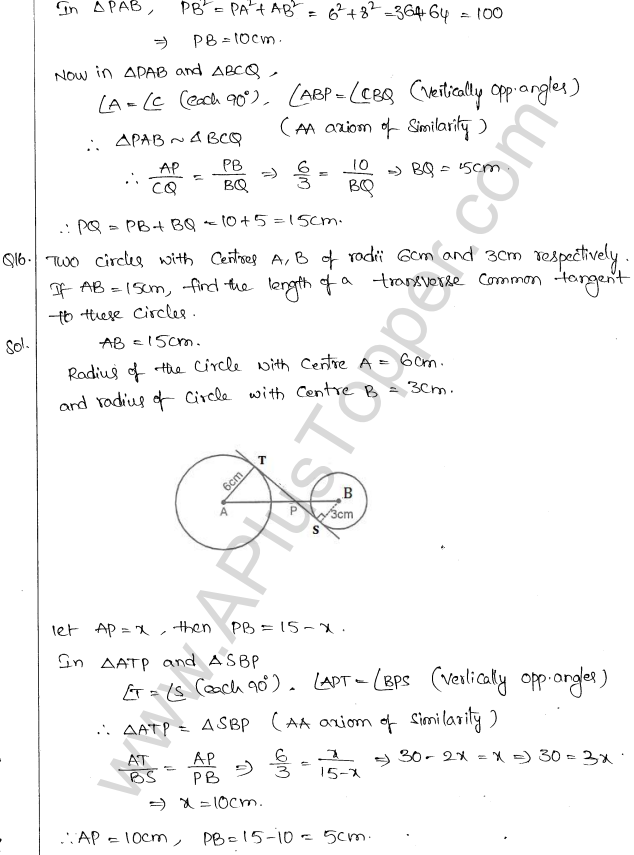 In ΔPAB, PB² = PA² + AB² = 6² + 8² = 364+64 = 100
⇒ PB = 10cm.
Now in ΔPAB and ΔBCQ,
∠A = ∠C (each 90°), ∠ABP = ∠CBQ (Vertically opp. angles)
∴ ΔPAB ~ ΔBCQ (AA axiom of Similarity)
∴ AP/CQ = PB/BQ ⇒ 6/3 = 10/BQ ⇒ BQ = 5cm.
∴ PQ = PB + BQ = 10 + 5 = 15cm.
Q16. Two circles with Centres A, B of radii 6cm and 3cm respectively.
If AB = 15cm, find the length of a transverse common tangent
to these circles.
Sol. AB = 15cm.
Radius of the circle with Centre A = 6cm.
and radius of circle with Centre B = 3cm.
T
6cm
B
A
P
3cm
S
let AP = x, then PB = 15 - x.
In ΔATP and ΔSBP
∠T = ∠S (each 90°). ∠APT = ∠BPS (Vertically opp. angles)
∴ ΔATP = ΔSBP (AA axiom of Similarity)
AT/BS = AP/PB ⇒ 6/3 = x/15-x ⇒ 30 - 2x = x ⇒ 30 = 3x.
⇒ x = 10cm.
∴ AP = 10cm, PB = 15 - 10 = 5cm.
www.APlusTopper.com